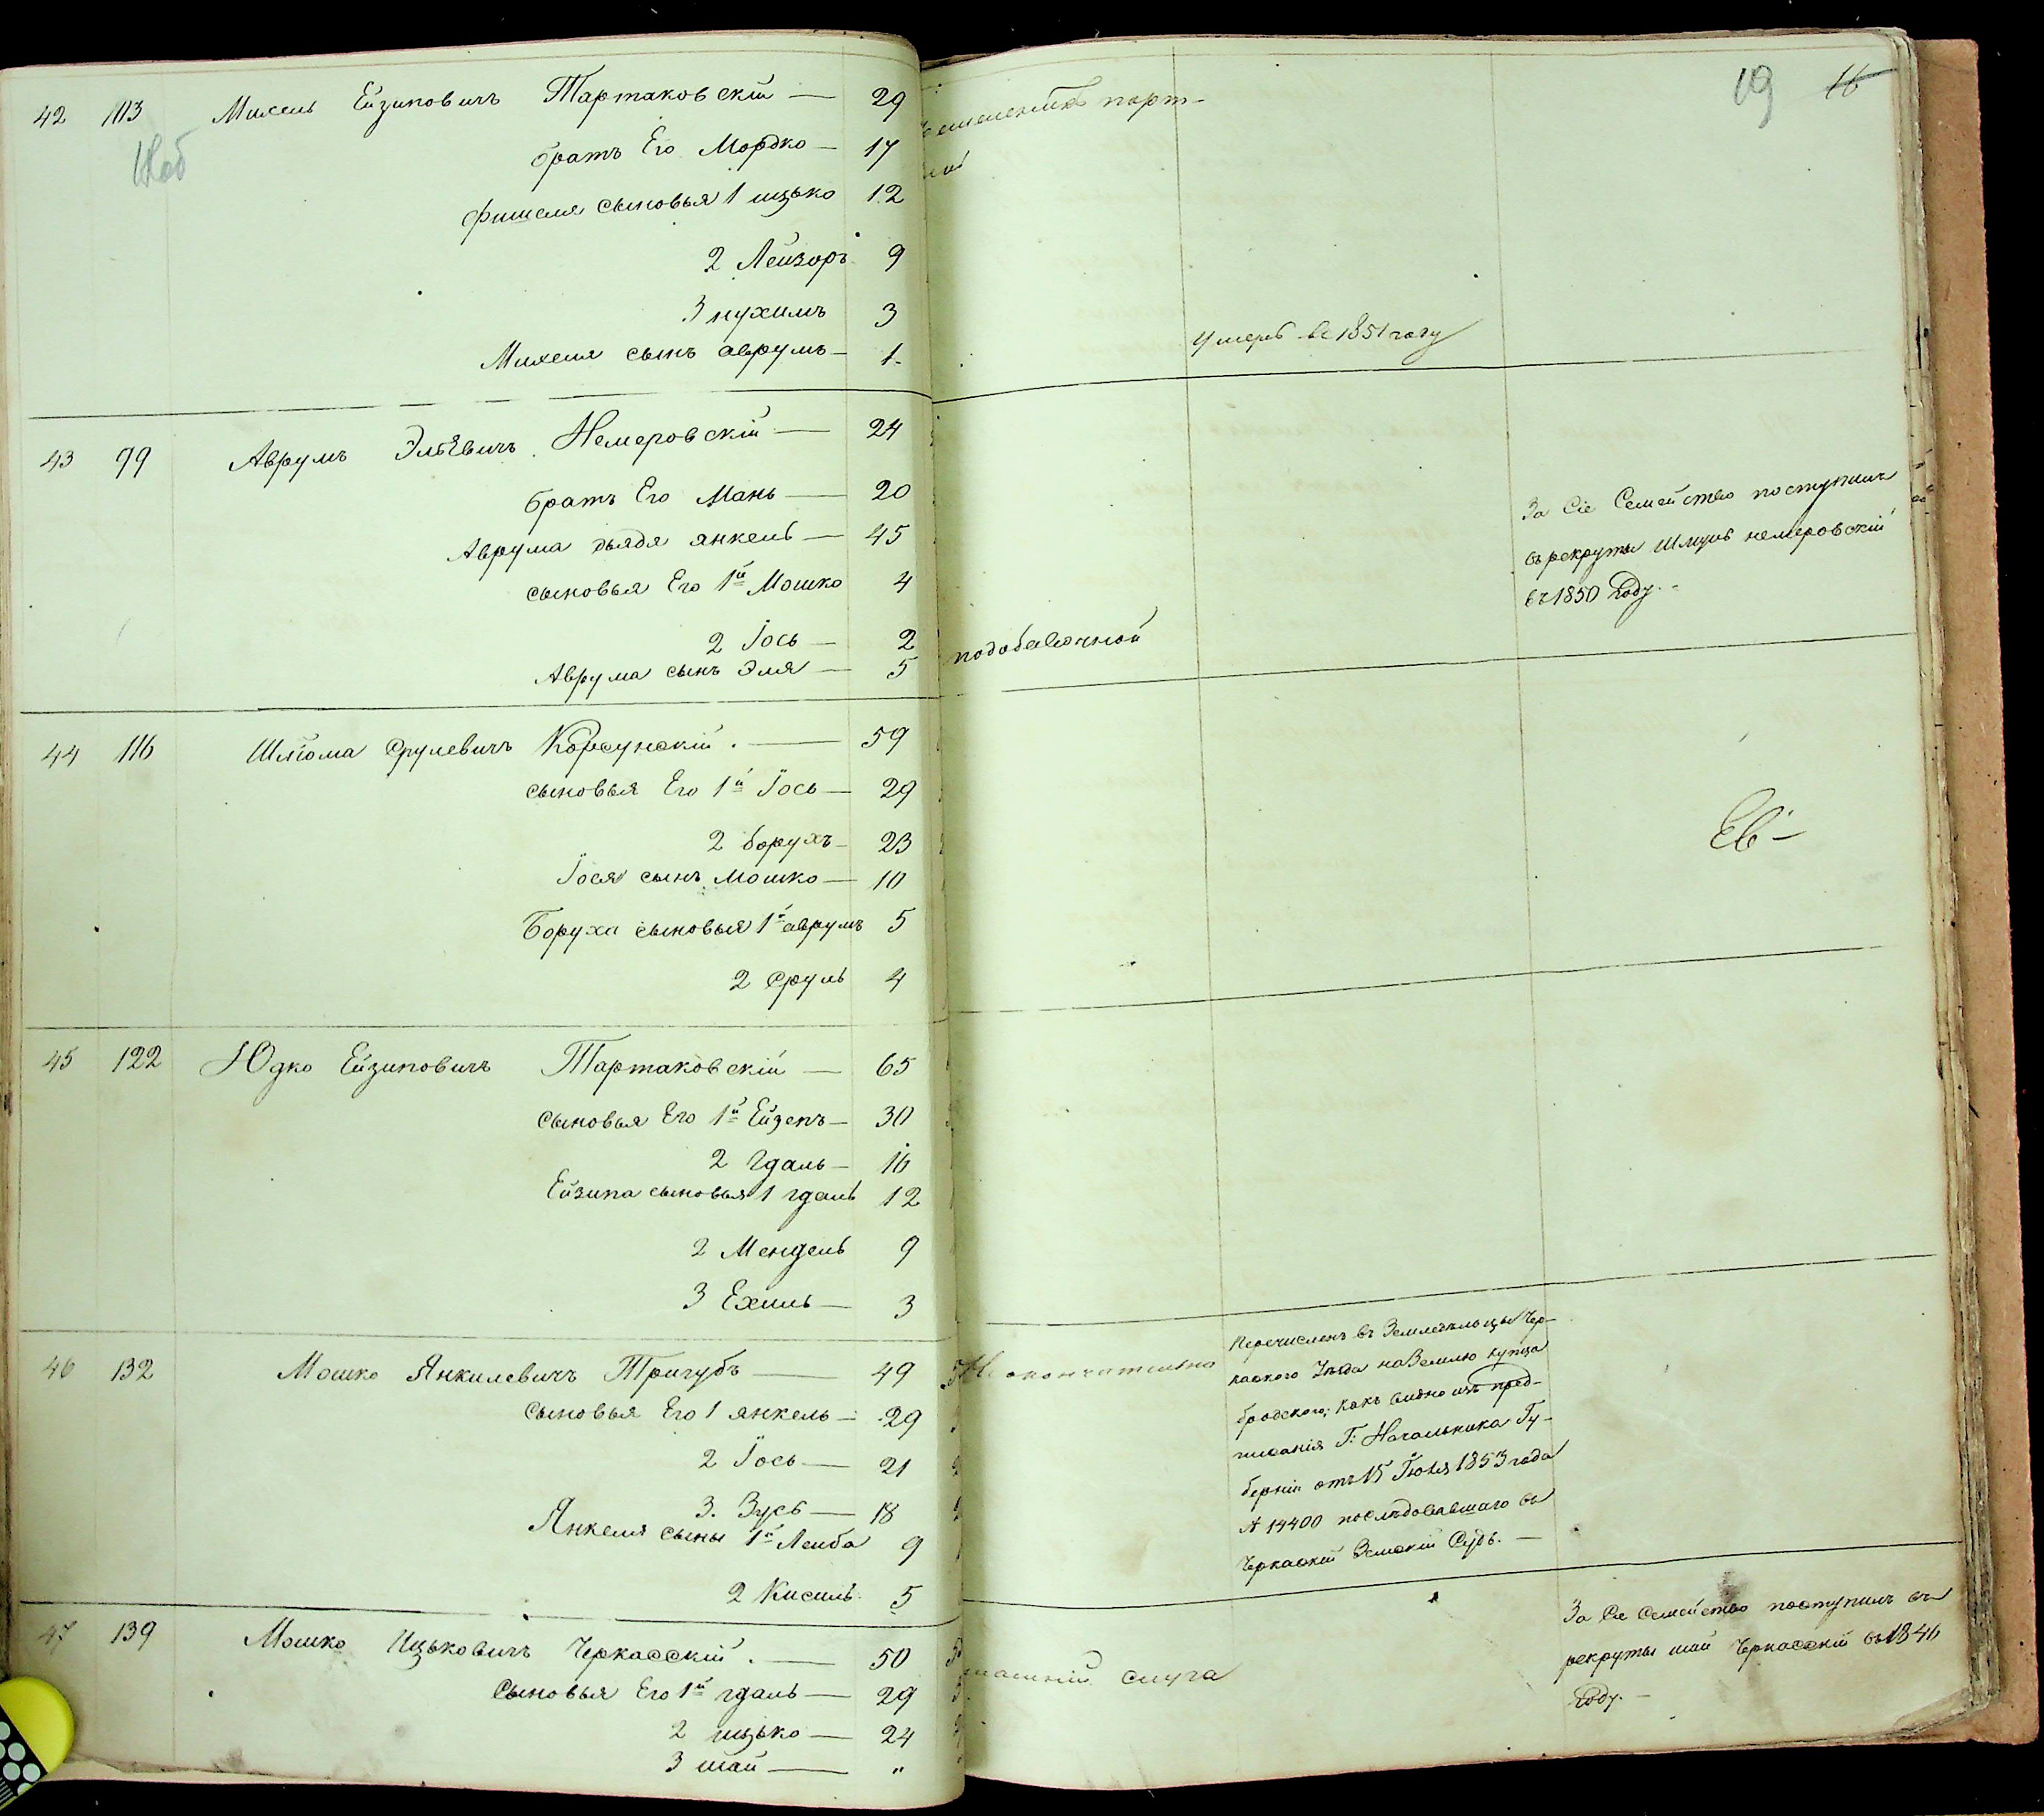 19 16
42 113 Михель Ейзиповичъ Тартаковскій — 29
братъ Его Мордко — 17
Фишеля сыновья 1 ицько 12
2 Лейзоръ 9
3 нухимъ 3
Михеля сынъ аврумъ — 1
43 99 Аврумъ Эльевичъ Немеровскій — 24
братъ Его Мань — 20
Аврума дьядя янкель — 45
сыновья Его 1й Мошко 4
2 Іось — 2
Аврума сынъ Эля — 5
44 116 Шліома Срулевичъ Корсунскій. — 59
сыновья Его 1й Іось — 29
2 борухъ — 23
Іося сынъ Мошко — 10
Боруха сыновья 1й аврумъ 5
2 Сруль 4
45 122 Юдко Ейзиповичъ Тартаковскій — 65
сыновья Его 1й Ейзепъ — 30
2 Гдаль — 16
Ейзипа сыновья 1 гдаль 12
2 Мендель 9
3 Ехиль — 3
46 132 Мошко Янкилевичъ Тригубъ — 49
сыновья Его 1 янкель — 29
2 Іось — 21
3. Зусь — 18
Янкеля сыны 1й Лейба 9
2 Кисиль 5
47 139 Мошко Ицьковичъ Черкасскій. — 50
Сыновья Его 1й гдаль — 29
2 ицько — 24
3 шай — "
парт-
Умеръ въ 1851 году
За Сіе Семейство поступилъ
въ рекруты Шмуль немеровскій
въ 1850 Году. -
подобавочной
Ев —
Не окончательно
Перечисленъ въ Земледельцы Чер-
каского Уезда на Землю купца
бродского; какъ видно изъ пред-
писанія Г: Начальника Гу-
берніи отъ 15 Іюля 1853 года
№ 14400 последовавшаго въ
Черкаскій Земскій Судъ. —
слуга
За Сіе Семейство поступилъ въ
рекруты шай Черкасскій въ 1846
Году. —